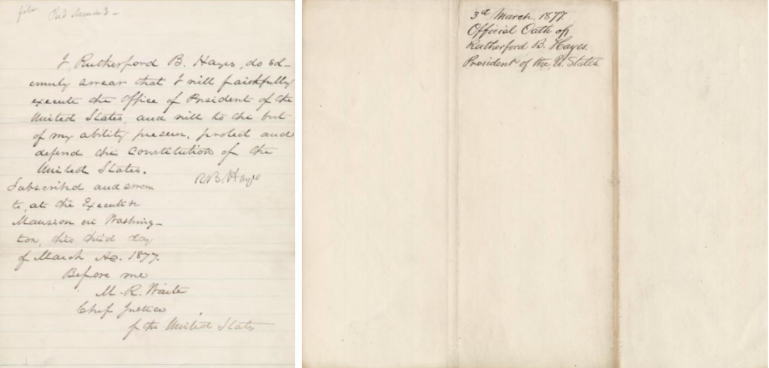 file
I, Rutherford B. Hayes, do so-
lemnly swear that I will faithfully
execute the Office of President of the
United States, and will to the best
of my ability preserve, protect and
defend the Constitution of the
United States.
R. B. Hayes
Subscribed and sworn
to, at the Executive
Mansion in Washing-
ton, this third day
of March AD. 1877.
Before me
M. R. Waite
Chief Justice
of the United States
3rd March, 1877
Official Oath of
Rutherford B. Hayes
President of the U. States